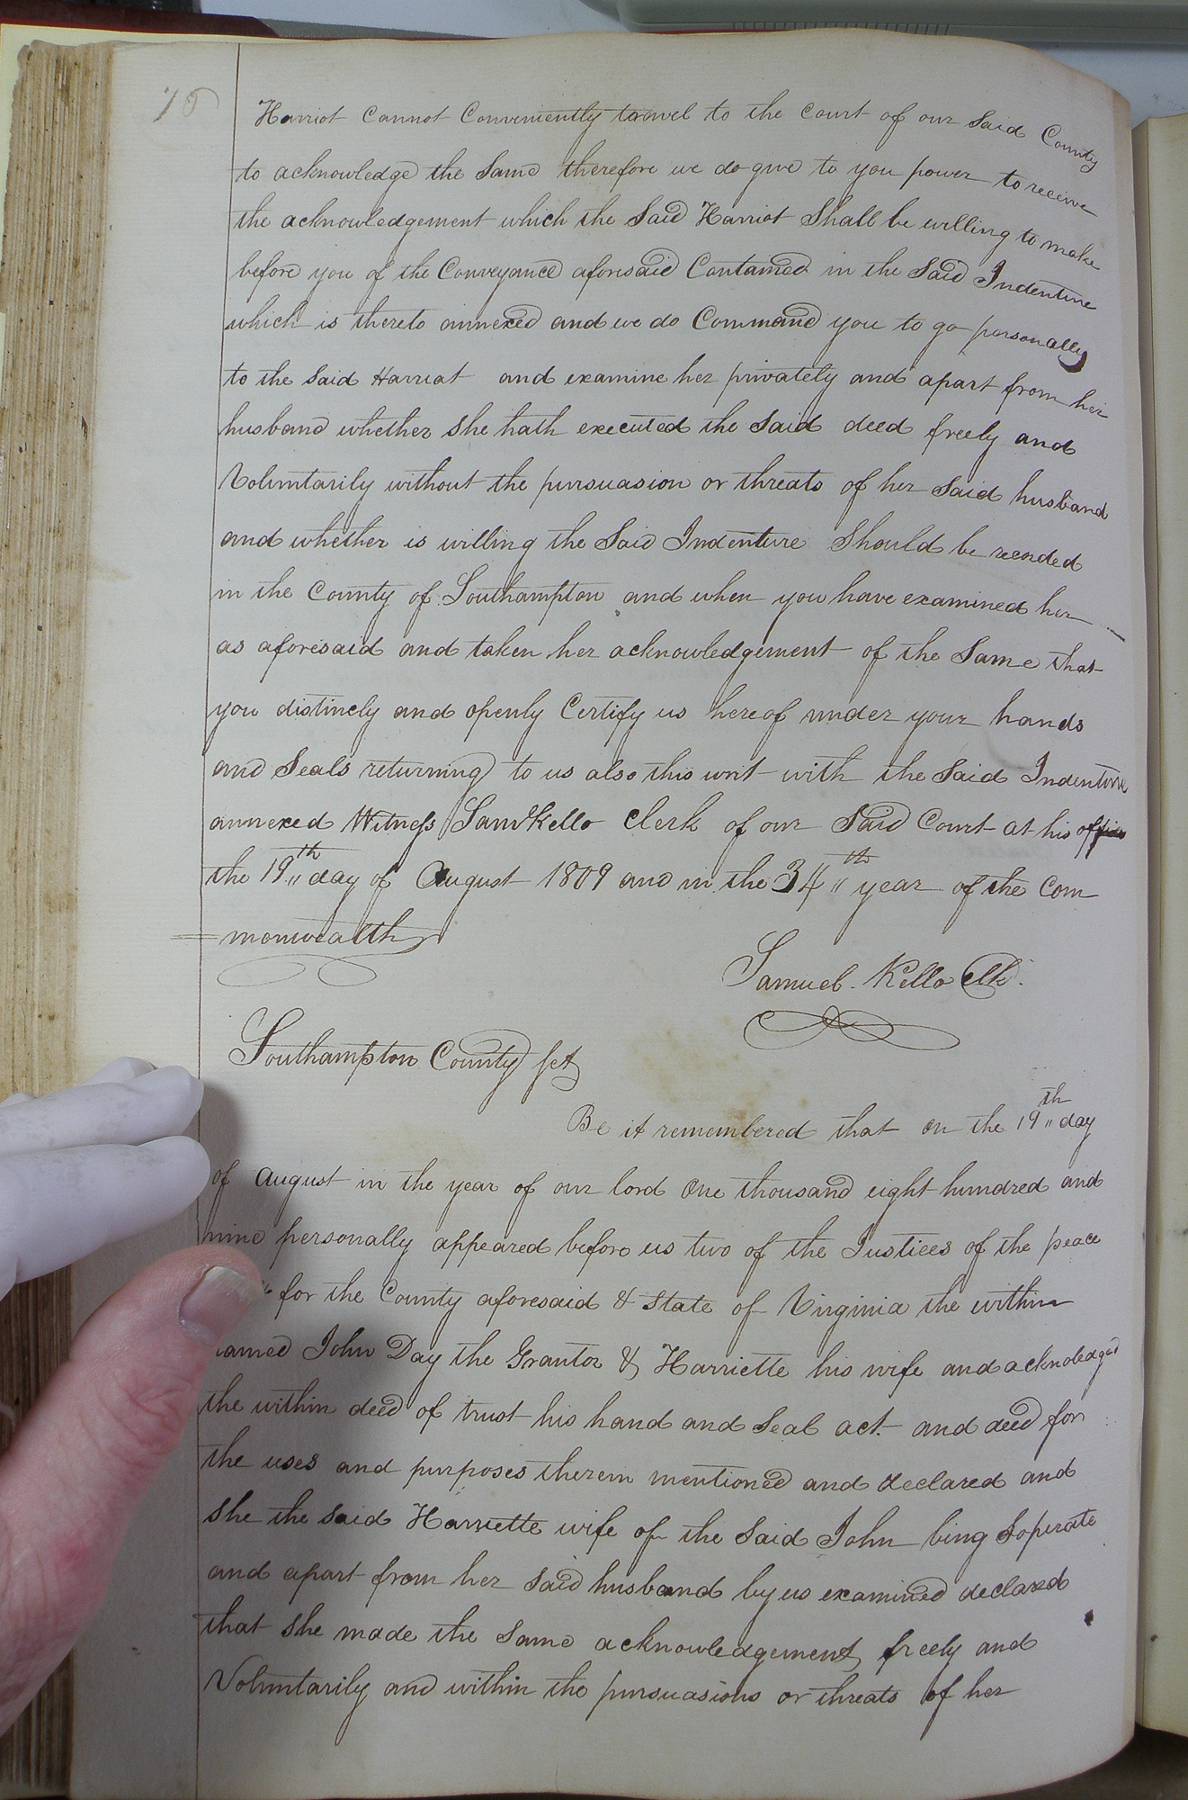 Harriot Cannot Conveniently travel to the Court of our Said County
to acknowledge the Same therefore we do give to you power to receive
the acknowledgement which the Said Harriot Shall be willing to make
before you of the Conveyance aforesaid Contained in the Said Indenture
which is thereto annexed and we do Command you to go personally
to the Said Harriot and examine her privately and apart from her
husband whether She hath executed the Said deed freely and
Voluntarily without the pursuasion or threats of her Said husband
and whether is willing the Said Indenture Should be recorded
in the County of Southampton and when you have examined her
as aforesaid and taken her acknowledgement of the Same that
you distincly and openly Certify us hereof under your hands
and Seals returning to us also this writ with the Said Indenture
annexed Witness Saml Kello Clerk of our Said Court at his office
the 19th day of August 1809 and in the 34th year of the Com
monwealth
Samuel Kello Clk.
Southampton County Sct
Be it remembered that on the 19th day
of August in the year of our lord One thousand eight hundred and
nine personally appeared before us two of the Justices of the peace
for the County aforesaid & State of Virginia the within
named John Day the Grantor & Harriette his wife and acknoledged
the within deed of trust his hand and Seal act and deed for
the uses and purposes therein mentioned and declared and
She the Said Harriette wife of the Said John bing Soperate
and apart from her Said husband by us examined declared
that She made the Same acknowledgement freely and
Voluntarily and within the pursuasions or threats of her